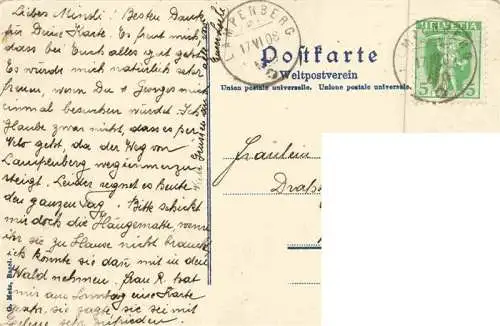 Liebes Mindi! Besten Dank
für Deine Karte. Es freut mich
dass bei Euch alles gut geht.
Es würde mich natürlich sehr
freuen, wenn Du & Georges mich
einmal besuchen würdet. Ich
Glaube zwar nicht, dass es per
Velo geht, da der Weg von
Laufenberg weg immer zu
steigt. Leider regnet es heute
den ganzen Tag. Bitte schickt
mir doch die Hängematte, wenn
ihr sie zu Hause nicht braucht
ich könnte sie dann mit in den
Wald nehmen. Frau R. hat
mir am Sonntag eine Karte
sie sagte sie sei mit
sehr zufrieden.
Viele Grüsse an alle von
LAUFENBERG
17.VI.08
Postkarte
Weltpostverein
Union postale universelle. Unione postale universale.
HELVETIA
5 5
Fräulein
G. Metz, Basel.